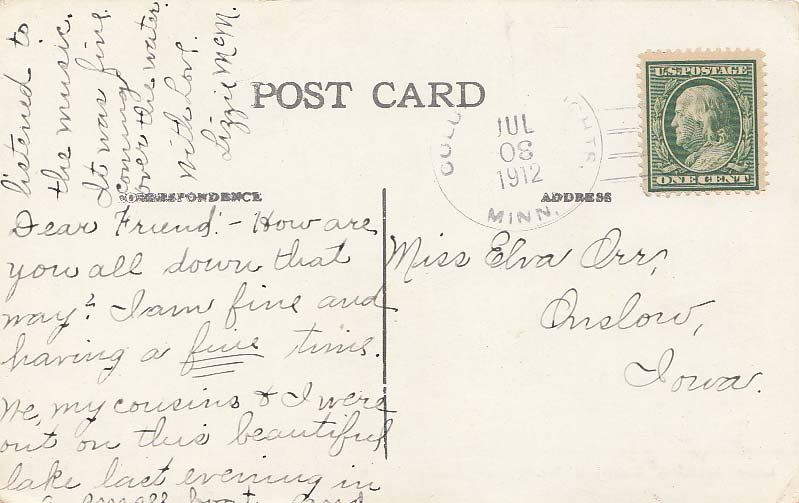 POST CARD
CORRESPONDENCE
ADDRESS
U.S. POSTAGE
ONE CENT
COLU HTS.
JUL
08
1912
MINN.
Miss Elva Orr,
Onslow,
Iowa.
Dear Friend:- How are
you all down that
way? I am fine and
having a fine time.
We, my cousins & I were
out on this beautiful
lake last evening in
a small boat, and
listened to
the music.
It was fine
coming
over the water.
With Love.
Lizzie McM.